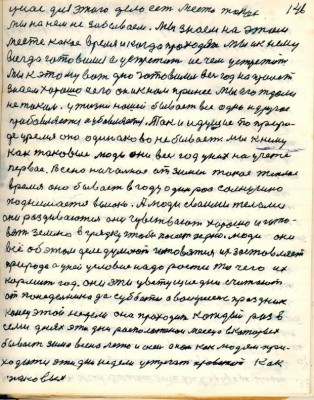 у нас для этого дело есть место такое 146
мы на нем не забываем. мы знаем на этом
месте какое время и когда проходит мы их к нему
всегда готовимся
мы к этому всегда готовимся весь год
знаем хорошо чего он к нам принес мы его ждали
не таким. у жизни нашей бывает все одно и другое
прибавляется и убавляется. Так и идущие по приро-
де время оно одинаково не бывает мы к нему
как таковые люди они весь год у них на учете
первое. Весна началася от зимы такое теплое
время оно бывает в году один раз солнушко
поднимается высоко. А люди своими телами
они раздеваются они чувствуют хорошо и гото-
вят землю в грядку чтобы посеять зерно. люди они
всё об этом деле думают готовятся их заставляет
природа у ней условия надо рости то чего их
кормит год. они эти цветущие дни считают
от понедельника до субботы а воскресеня праздник
конец этой недели она проходит каждый раз в
семи днях эти дни расположены месяцо в которых
бывает зима весна лето и осень они как людям при-
ходят эти дни недели утром провожают Как
таковых